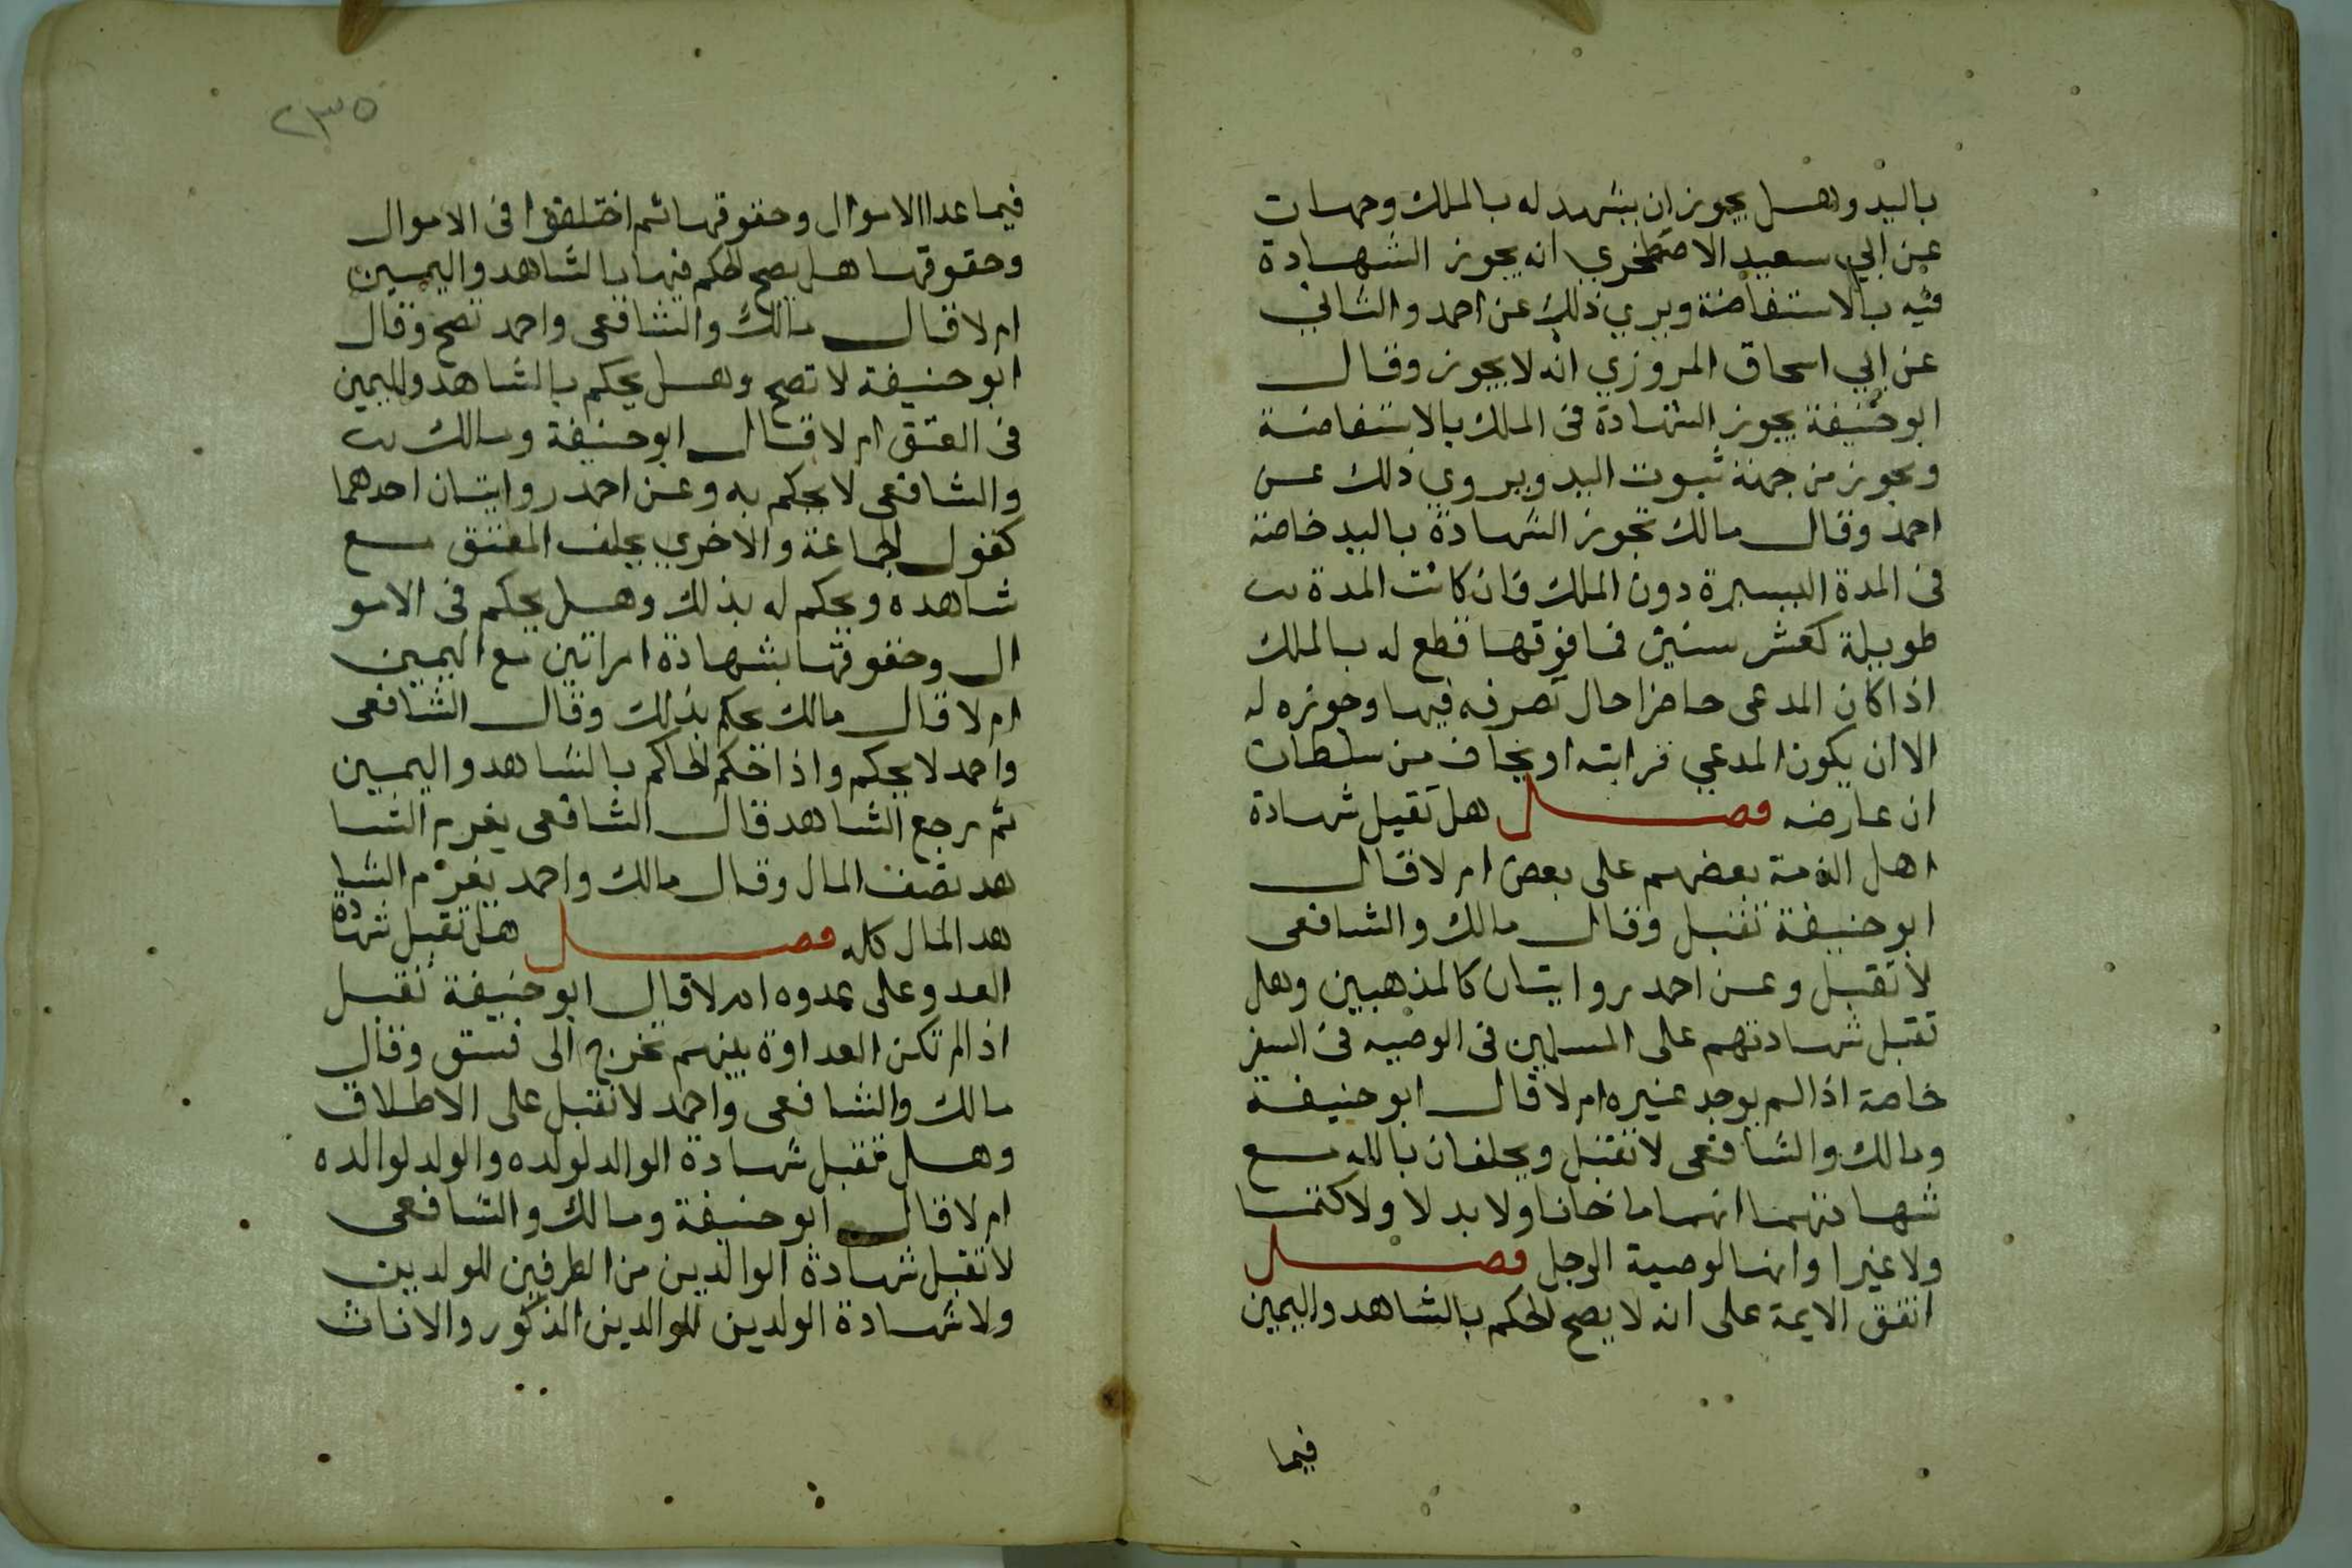 باليد وهل يجوز ان يشهد له بالملك وجهان
عن ابي سعيد الاصطخري انه يجوز الشهادة
فيه بالاستفاضة ويري ذلك عن احمد والثاني
عن ابي اسحاق المروزي انه لا يجوز وقال
ابو حنيفة يجوز الشهادة في الملك بالاستفاضة
ويجوز من جهة ثبوت اليد ويروي ذلك عن
احمد وقال مالك تجوز الشهادة باليد خاصة
في المدة اليسيرة دون الملك فان كانت المدة
طويلة كعشر سنين فما فوقها قطع له بالملك
اذا كان المدعى حاضرا حال تصرفه فيها وحوزه له
الا ان يكون المدعي قرابته او يخاف من سلطان
ان عارضه فصل هل تقبل شهادة
اهل الذمة بعضهم على بعض ام لا قال
ابو حنيفة تقبل وقال مالك والشافعى
لا تقبل وعن احمد روايتان كالمذهبين وهل
تقبل شهادتهم على المسلمين في الوصيه في السفر
خاصة اذا لم يوجد غيره ام لا قال ابو حنيفة
ومالك والشافعى لا تقبل ويحلفان بالله مع
شهادتهما انهما ما خانا ولا بدلا ولا كتما
ولا غيرا وانها لوصية الرجل فصل
اتفق الايمة على انه لا يصح الحكم بالشاهد واليمين
فيما
٢٣٥
فيما عدا الاموال وحقوقها ثم اختلفوا في الاموال
وحقوقها هل يصح الحكم فيها بالشاهد واليمين
ام لا قال مالك والشافعى واحمد تصح وقال
ابو حنيفة لا تصح وهل يحكم بالشاهد واليمين
في العتق ام لا قال ابو حنيفة ومالك
والشافعى لا يحكم به وعن احمد روايتان احدهما
كقول الجماعة والاخري يحلف المعتق مع
شاهده ويحكم له بذلك وهل يحكم في الامو
ال وحقوقها بشهادة امراتين مع اليمين
ام لا قال مالك يحكم بذلك وقال الشافعى
واحمد لا يحكم واذا حكم الحاكم بالشاهد واليمين
ثم رجع الشاهد قال الشافعى يغرم الشا
هد نصف المال وقال مالك واحمد يغرم الشا
هد المال كله فصل هل تقبل شهادة
العدو على عدوه ام لا قال ابو حنيفة تقبل
اذا لم تكن العداوة بينهم تخرج الى فسق وقال
مالك والشافعى واحمد لا تقبل على الاطلاق
وهل تقبل شهادة الوالد لولده والولد لوالده
ام لا قال ابو حنيفة ومالك والشافعى
لا تقبل شهادة الوالدين من الطرفين للولدين
ولا شهادة الولدين للوالدين الذكور والاناث